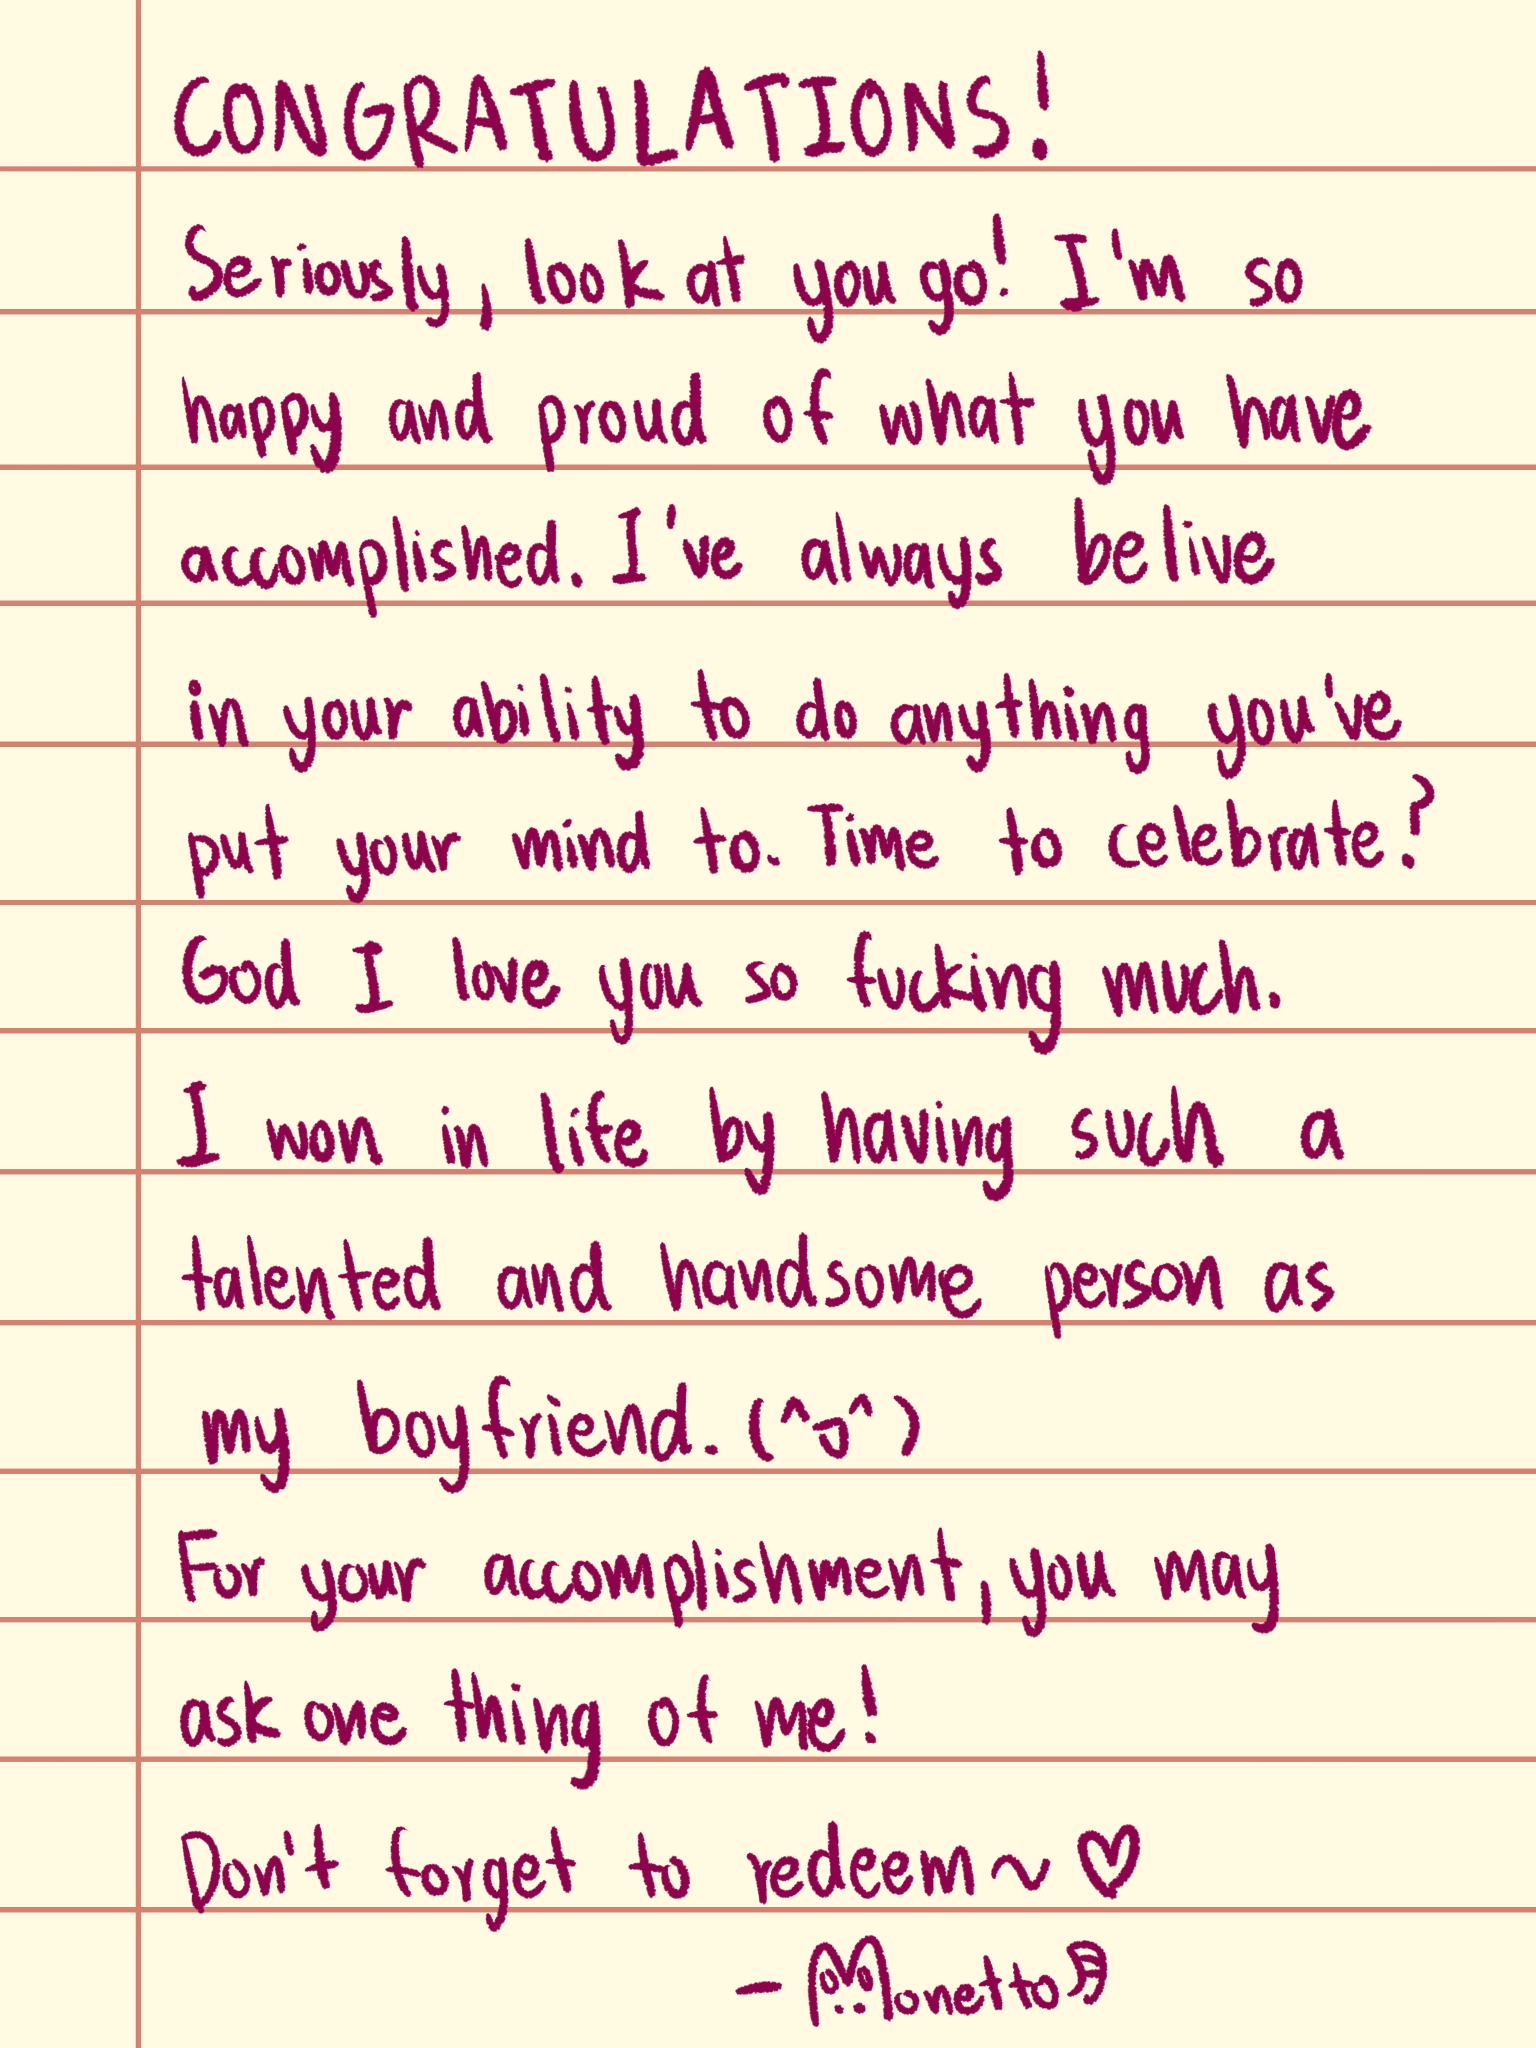 CONGRATULATIONS!
Seriously, look at you go! I'm so
happy and proud of what you have
accomplished. I've always belive
in your ability to do anything you've
put your mind to. Time to celebrate?
God I love you so fucking much.
I won in life by having such a
talented and handsome person as
my boyfriend. (^ᴗ^)
For your accomplishment, you may
ask one thing of me!
Don't forget to redeem~♡
- Monetto